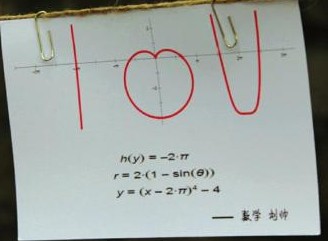 h(y) = −2·π
r = 2·(1 − sin(θ))
y = (x − 2·π)⁴ − 4
—— 数学 刘帅